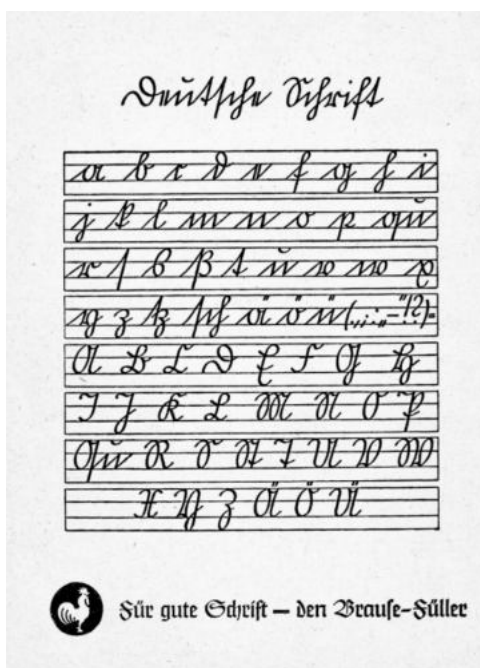 Deutſche Schrift
a b c d e f g h i
j k l m n o p qu
r ſ s ß t u v w x
y z tz ſch ä ö ü (.,;:„–“!?)=
A B C D E F G H
I J K L M N O P
Qu R S St T U V W
X Y Z Ä Ö Ü
Für gute Schrift — den Brauſe-Füller